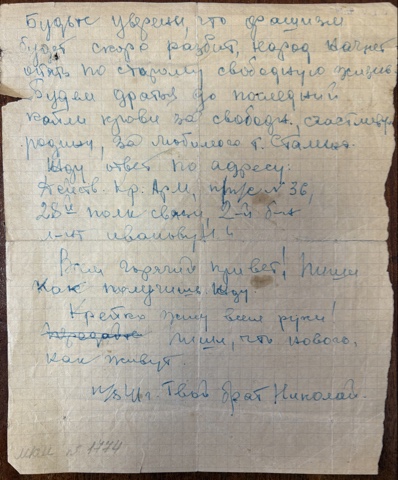 Будьте уверены, что фашизм
будет скоро разбит, народ начнет
опять по старому свободную жизнь.
Будем драться до последней
капли крови за свободу, счастливую
родину, за любимого т. Сталина.
Жду ответ по адресу:
Действ. Кр. Арм, п/я № 36,
28й полк связи, 2-й б-н
л-нт Иванову Н.
Вам горячий привет! Пиши
как получишь жду
Крепко жму всем руки!
Пиши, что нового,
как живут.
41г. Твой брат Николай.
№ 1174